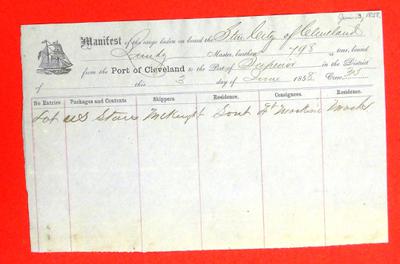 June 3, 1858
Manifest of the cargo laden on board the Stm. City of Cleveland
Lundy Master, burthen 798 tons, bound
from the Port of Cleveland to the Port of Superior in the District
of this 3 day of June 1858 Crew
No Entries Packages and Contents Shippers Residence. Consignees. Residence.
Lot US Stores McKnight